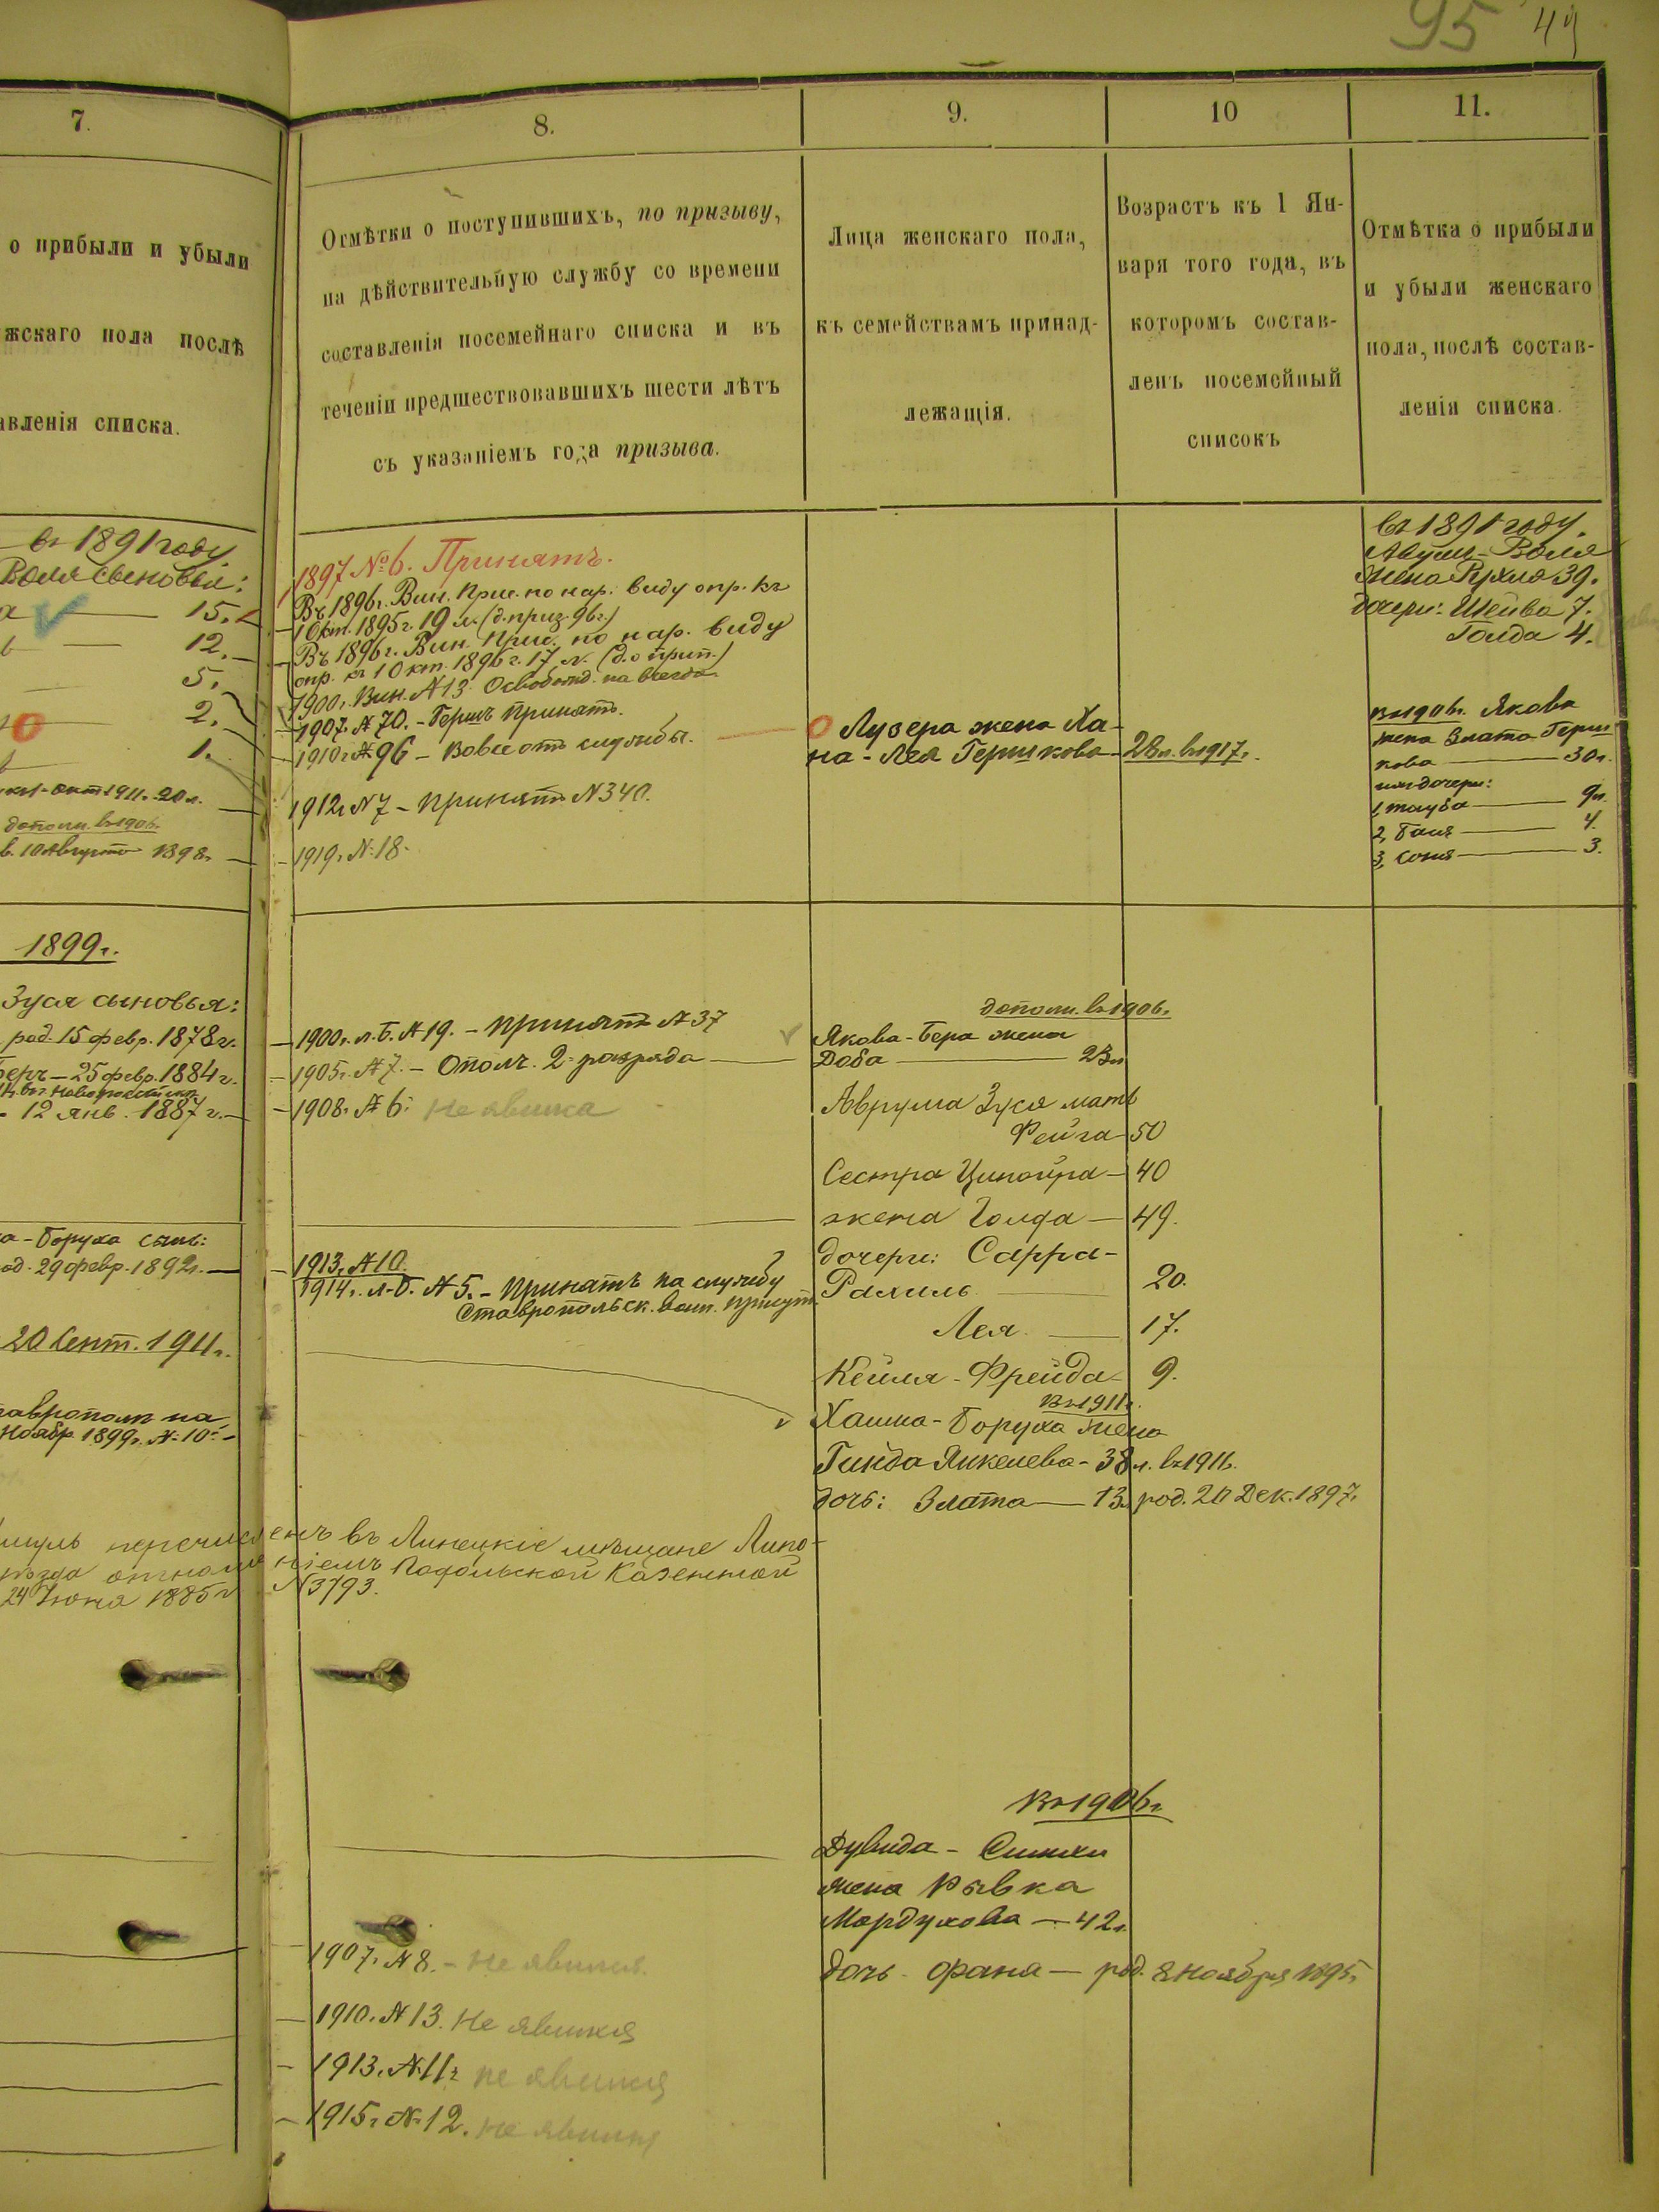 95 49
7.
о прибыли и убыли
жскаго пола послѣ
авленія списка.
въ 1891 году
Воля сыновья:
15.
12.
5.
2.
1.
окт 1911 г. 20 л.
дополн. въ 1906.
10 Августа 1898 г.
1899 г.
Зуся сыновья:
род. 15 февр. 1878 г.
Беръ — 25 февр. 1884 г.
12 янв. 1887 г.
а-Боруха сынъ:
од. 29 февр. 1892 г.
20 Сент. 1911 г.
таврополь на
Ноябр. 1899 г. № 10
8.
Отмѣтки о поступившихъ, по призыву,
на дѣйствительную службу со времени
составленія посемейнаго списка и въ
теченіи предшествовавшихъ шести лѣтъ
съ указаніемъ года призыва.
1897 № 6. Принятъ.
Въ 1896 г. Вин. Прис. по нар. виду опр. къ
1 Окт. 1895 г. 19 л. (д. приз. 96 г.)
Въ 1896 г. Вин. Прис. по нар. виду
опр. къ 1 Окт. 1896 г. 17 л. (д. о прип.)
1900 г. Вин. № 13. Освобожд. на всегда
1907 № 70. – Гершъ принятъ.
1910 г. № 96 – Вовсе отъ службы.
1912 г. № 7 – принятъ № 340.
1919 г. № 18.
1900 г. л. Б. № 19. – принятъ № 37
1905 г. № 7. – Ополч. 2 разряда
1908 г. № 6. Не явился
1913 г. № 10.
1914 г. л-Б. № 5. – Принятъ на службу
Ставропольск. воин. присут.
муль перечисленъ въ Линецкіе мѣщане Липо-
уѣзда отношеніемъ Подольской Казенной
24 Іюня 1885 г. № 3793.
1907 г. № 8. – Не явился.
1910 г. № 13. Не явился
1913 г. № 11 не явился
1915 г. № 12. Не явился
9.
Лица женскаго пола,
къ семействамъ принад-
лежащія.
Лузера жена Ха-
на-Лея Гершкова
дополн. въ 1906 г.
Якова-Бера жена
Доба — 23 л
Аврума Зуся мать
Фейга — 50
Сестра Ципойра — 40
жена Голда — 49.
дочери: Сарра-
Рахиль — 20.
Лея. — 17.
Кейля-Фрейда 9.
Въ 1911 г.
Хаима-Боруха жена
Гинда Янкелева – 38 л. въ 1911 г.
дочь: Злата — 13. род. 20 Дек. 1897 г.
Въ 1906 г.
Дувида-Симхи
жена Ривка
Мордухова — 42 л.
дочь Фана — род. 8 Ноября 1895 г.
10
Возрастъ къ 1 Ян-
варя того года, въ
которомъ состав-
ленъ посемейный
списокъ
28 л. въ 1917 г.
11.
Отмѣтка о прибыли
и убыли женскаго
пола, послѣ состав-
ленія списка.
въ 1891 году.
Авуми-Воля
жена Рухля 39.
дочери: Шейва 7.
Голда 4.
Въ 1906 г. Якова
жена Злата Герш
кова — 30 л.
ихъ дочери:
1, Тауба — 9 л.
2, Бася — 4.
3, Соня — 3.